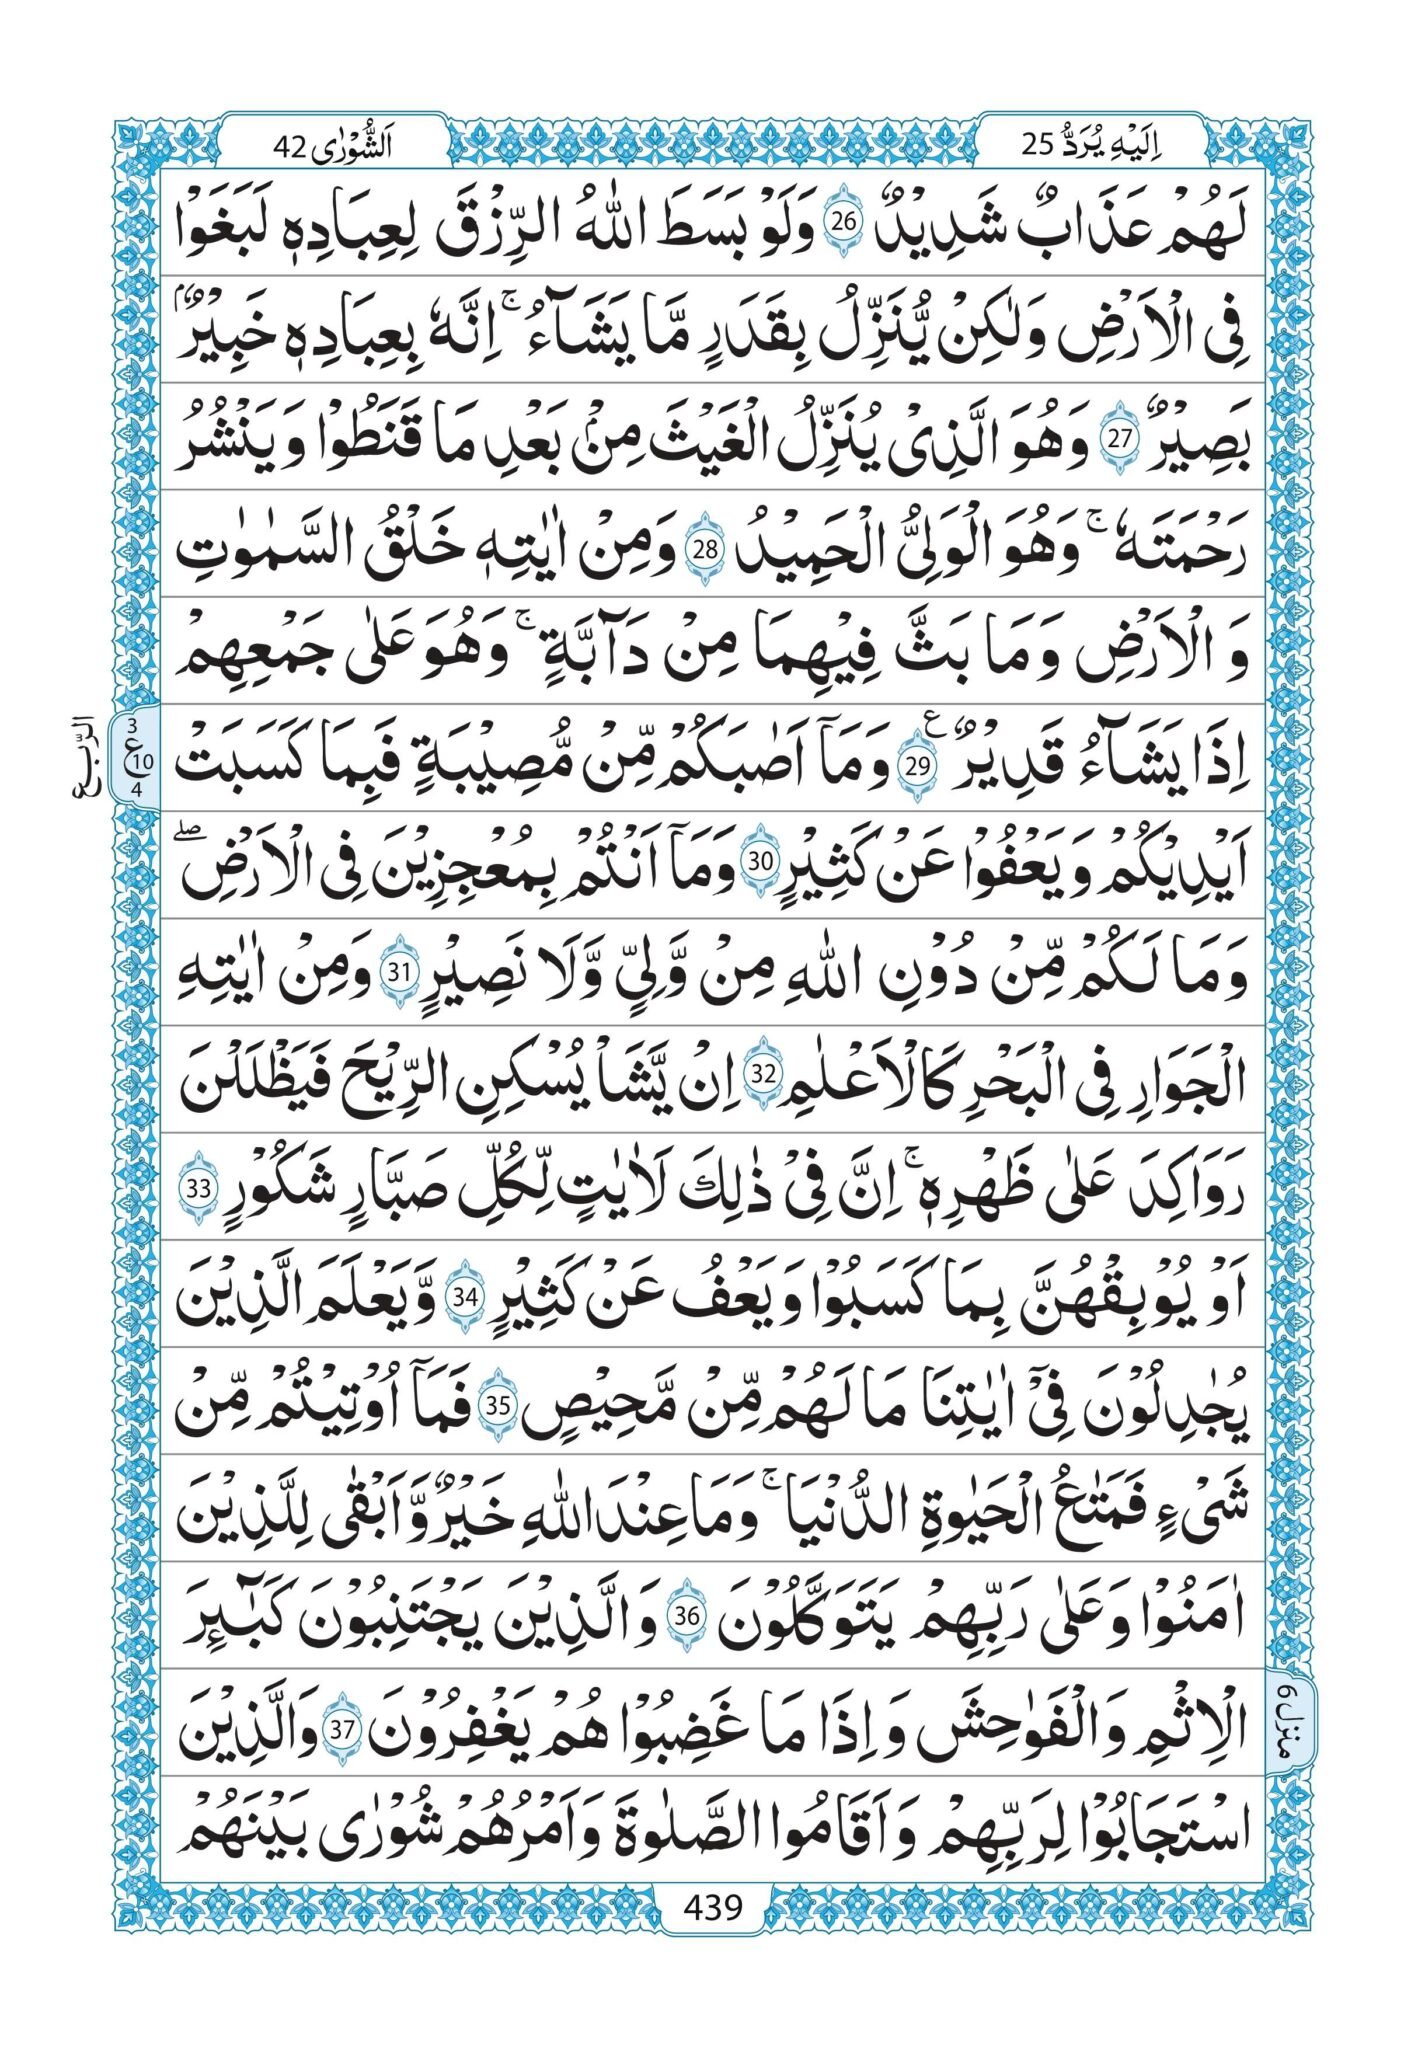 اِلَيْهِ يُرَدُّ 25
اَلشُّوْرٰى 42
لَهُمْ عَذَابٌ شَدِيْدٌ 26 وَلَوْ بَسَطَ اللّٰهُ الرِّزْقَ لِعِبَادِهٖ لَبَغَوْا
فِى الْاَرْضِ وَلٰكِنْ يُّنَزِّلُ بِقَدَرٍ مَّا يَشَآءُ ۚ اِنَّهٗ بِعِبَادِهٖ خَبِيْرٌۢ
بَصِيْرٌ 27 وَهُوَ الَّذِىْ يُنَزِّلُ الْغَيْثَ مِنْۢ بَعْدِ مَا قَنَطُوْا وَيَنْشُرُ
رَحْمَتَهٗ ۚ وَهُوَ الْوَلِىُّ الْحَمِيْدُ 28 وَمِنْ اٰيٰتِهٖ خَلْقُ السَّمٰوٰتِ
وَالْاَرْضِ وَمَا بَثَّ فِيْهِمَا مِنْ دَآبَّةٍ ۚ وَهُوَ عَلٰى جَمْعِهِمْ
اِذَا يَشَآءُ قَدِيْرٌ 29 ع وَمَآ اَصٰبَكُمْ مِّنْ مُّصِيْبَةٍ فَبِمَا كَسَبَتْ
الرّبع
3
ع 10
4
اَيْدِيْكُمْ وَيَعْفُوْا عَنْ كَثِيْرٍ 30 وَمَآ اَنْتُمْ بِمُعْجِزِيْنَ فِى الْاَرْضِ ۖ
وَمَا لَكُمْ مِّنْ دُوْنِ اللّٰهِ مِنْ وَّلِىٍّ وَّلَا نَصِيْرٍ 31 وَمِنْ اٰيٰتِهِ
الْجَوَارِ فِى الْبَحْرِ كَالْاَعْلٰمِ 32 اِنْ يَّشَاْ يُسْكِنِ الرِّيْحَ فَيَظْلَلْنَ
رَوَاكِدَ عَلٰى ظَهْرِهٖ ۚ اِنَّ فِىْ ذٰلِكَ لَاٰيٰتٍ لِّكُلِّ صَبَّارٍ شَكُوْرٍ 33
اَوْ يُوْبِقْهُنَّ بِمَا كَسَبُوْا وَيَعْفُ عَنْ كَثِيْرٍ 34 وَّيَعْلَمَ الَّذِيْنَ
يُجٰدِلُوْنَ فِىْٓ اٰيٰتِنَا مَا لَهُمْ مِّنْ مَّحِيْصٍ 35 فَمَآ اُوْتِيْتُمْ مِّنْ
شَىْءٍ فَمَتٰعُ الْحَيٰوةِ الدُّنْيَا ۚ وَمَا عِنْدَ اللّٰهِ خَيْرٌ وَّاَبْقٰى لِلَّذِيْنَ
اٰمَنُوْا وَعَلٰى رَبِّهِمْ يَتَوَكَّلُوْنَ 36 وَالَّذِيْنَ يَجْتَنِبُوْنَ كَبٰٓئِرَ
الْاِثْمِ وَالْفَوٰحِشَ وَاِذَا مَا غَضِبُوْا هُمْ يَغْفِرُوْنَ 37 وَالَّذِيْنَ
منزل 6
اسْتَجَابُوْا لِرَبِّهِمْ وَاَقَامُوا الصَّلٰوةَ وَاَمْرُهُمْ شُوْرٰى بَيْنَهُمْ
439